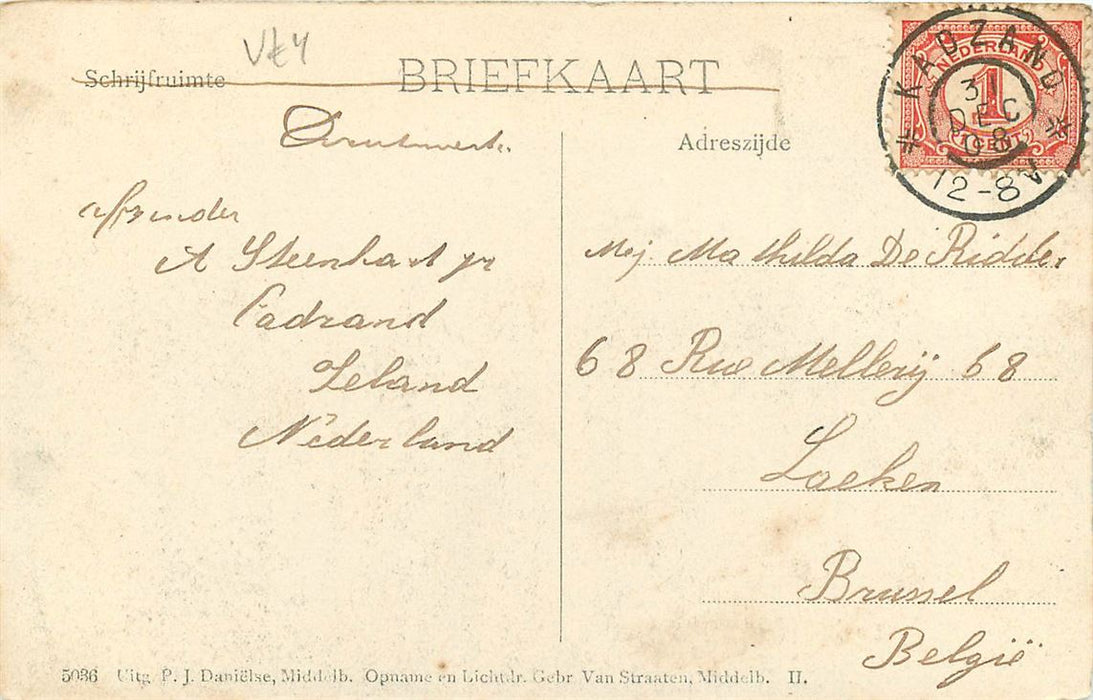 V84
Schrijfruimte
BRIEFKAART
Drukwerk.
Afzender
A Steenhart jr
Cadzand
Zeland
Nederland
Adreszijde
KADZAND
3
DEC
08
12-8 V
NEDERLAND
1
CENT
Mej. Mathilda De Ridder
68 Rue Mellerij 68
Laeken
Brussel
België
5036 Uitg. P. J. Daniëlse, Middelb. Opname en Lichtdr. Gebr. Van Straaten, Middelb. II.